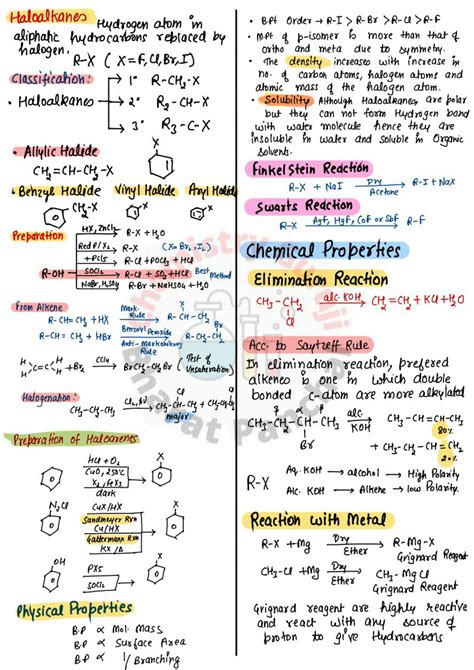 Haloalkanes Hydrogen atom in
aliphatic hydrocarbons replaced by
halogen.
R-X ( X = F, Cl, Br, I )
Classification:
• Haloalkanes
1° R-CH₂-X
2° R₂-CH-X
3° R₃-C-X
• Allylic Halide
CH₂=CH-CH₂-X
X
• Benzyl Halide Vinyl Halide Aryl Halide
CH₂X
X
X
Preparation
R-OH
HX, ZnCl₂ R-X
Red P/X₂ R-X (X= Br₂, I₂)
+PCl₅ R-Cl + POCl₃ + HCl
SOCl₂ R-Cl + SO₂ + HCl Best Method
NaBr, H₂SO₄ R-Br + NaHSO₄ + H₂O
From Alkene
R-CH=CH₂ + HX Mark. Rule R-CH-CH₃
X
R-CH=CH₂ + HBr Benzoyl Peroxide R-CH₂-CH₂
Anti-Markonikov Rule
Br
H H
C=C + Br₂ CCl₄ BrCH₂-CH₂Br (Test of Unsaturation)
H H
Halogenation:
CH₃-CH₂-CH₂-CH₃ Cl₂, hν CH₃-CH-CH₂-CH₃ +
Cl
major
Preparation of Haloarenes
HCl + O₂
CuO, 250°C
X₂/FeX₃
dark
X
N₂Cl
CuX/HX
Sandmeyer Rxn
Gattermann Rxn
KX/Δ
X
OH
PX5
SOCl₂
X
Physical Properties
B.P ∝ Mol. Mass
B.P ∝ Surface Area
B.P ∝ 1/Branching
• B.Pt Order → R-I > R-Br > R-Cl > R-F
• MPt of p-isomer is more than that of
ortho and meta due to symmetry.
• The density increases with increase in
no. of carbon atoms, halogen atoms and
atomic mass of the halogen atom.
• Solubility Although Haloalkanes are polar
but they can not form Hydrogen bond
with water molecule hence they are
insoluble in water and soluble in Organic
Solvents.
Finkelstein Reaction
R-X + NaI Dry Acetone R-I + NaX
Swarts Reaction
R-X AgF, HgF₂ CoF or SbF R-F
Chemical Properties
Elimination Reaction
CH₃-CH₂ alc. KOH CH₂=CH₂ + KCl + H₂O
Cl
Acc. to Saytzeff Rule
In elimination reaction, prefered
alkene is one in which double
bonded C-atom are more alkylated
CH₃-CH₂-CH-CH₃ alc. KOH CH₃-CH=CH-CH₃
Br
80%
+ CH₃-CH₂-CH=CH₂
20%
R-X
Aq. KOH → alcohol → High Polarity
Alc. KOH → Alkene → low Polarity.
Reaction with Metal
R-X + Mg Dry Ether R-Mg-X
Grignard Reagent
CH₃-Cl + Mg Dry Ether CH₃-MgCl
Grignard Reagent
Grignard reagent are highly reactive
and react with any source of
proton to give Hydrocarbons